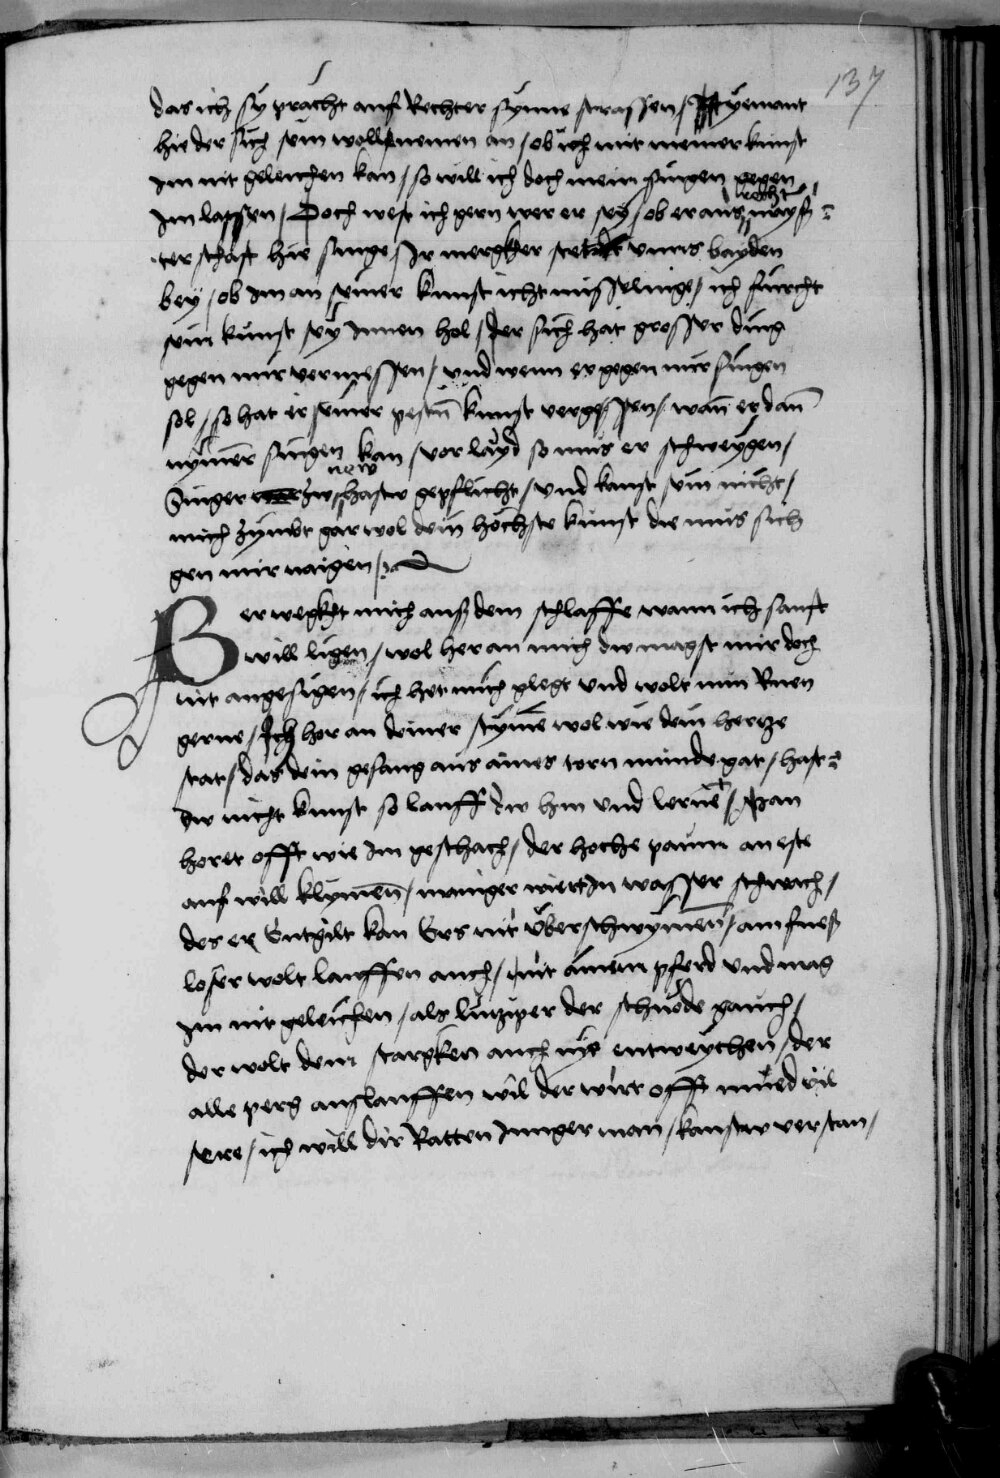 137
das ich sy pracht auf Rechter synne strassen / Ist yemant
hie der sich sein wolle nemen an / ob ich mit meiner kunst
Im nit geleichen kan / so will ich doch mein singen gegen
Im lassen / Doch west ich gern wer er sey / ob er aus recht mays=
ter schaft hie singe / Ir mergker stet vnns bayden
bey / ob Im an seiner kunst icht misselinge / ich furcht
sein kunst sey Innen hol / der sich hat grosser ding
gegen mir vermessen / vnd wenn er gegen mir singen
sol / so hat er seiner pestn̄ kunst vergessen / wan̄ er dan̄
nym̄er singen kan / vor layd so mus er schweygen /
Singer new zw hastw gepflicht / vnd kanst sein nicht /
mich zymbt gar wol dein höchste kunst die mus sich
gen mir naigen /
Er wegkht mich auß dem schlaffe wann ich sanft
will ligen / wol her an mich dw magst mir doch
nit angesigen / ich het mich glegt vnd wolt nun Ruen
gerne / Ich hor an deiner stym̄e wol wie dein hertze
stat / das dein gesang aus aines torn munde gat / hast=
dw nicht kunst so lauff dw hin vnd lerne / Man
horet offt wie Im geschach / der hoche paum an este
auf will klymen̄ / maniger wiert In wasser schwach /
des er Entgilt kan Ers nit überschwymen̄ / ain fueß
loser wolt lauffen auch / mit ainem pferd vnd mag
Im nit geleichen / als lutziper der schnöde gauch /
der wolt dem starcken auch nye entweychen / der
alle perg auslauffen wil der wirt offt mued vil
sere / ich will dir Ratten Junger man / kanstw verstan /